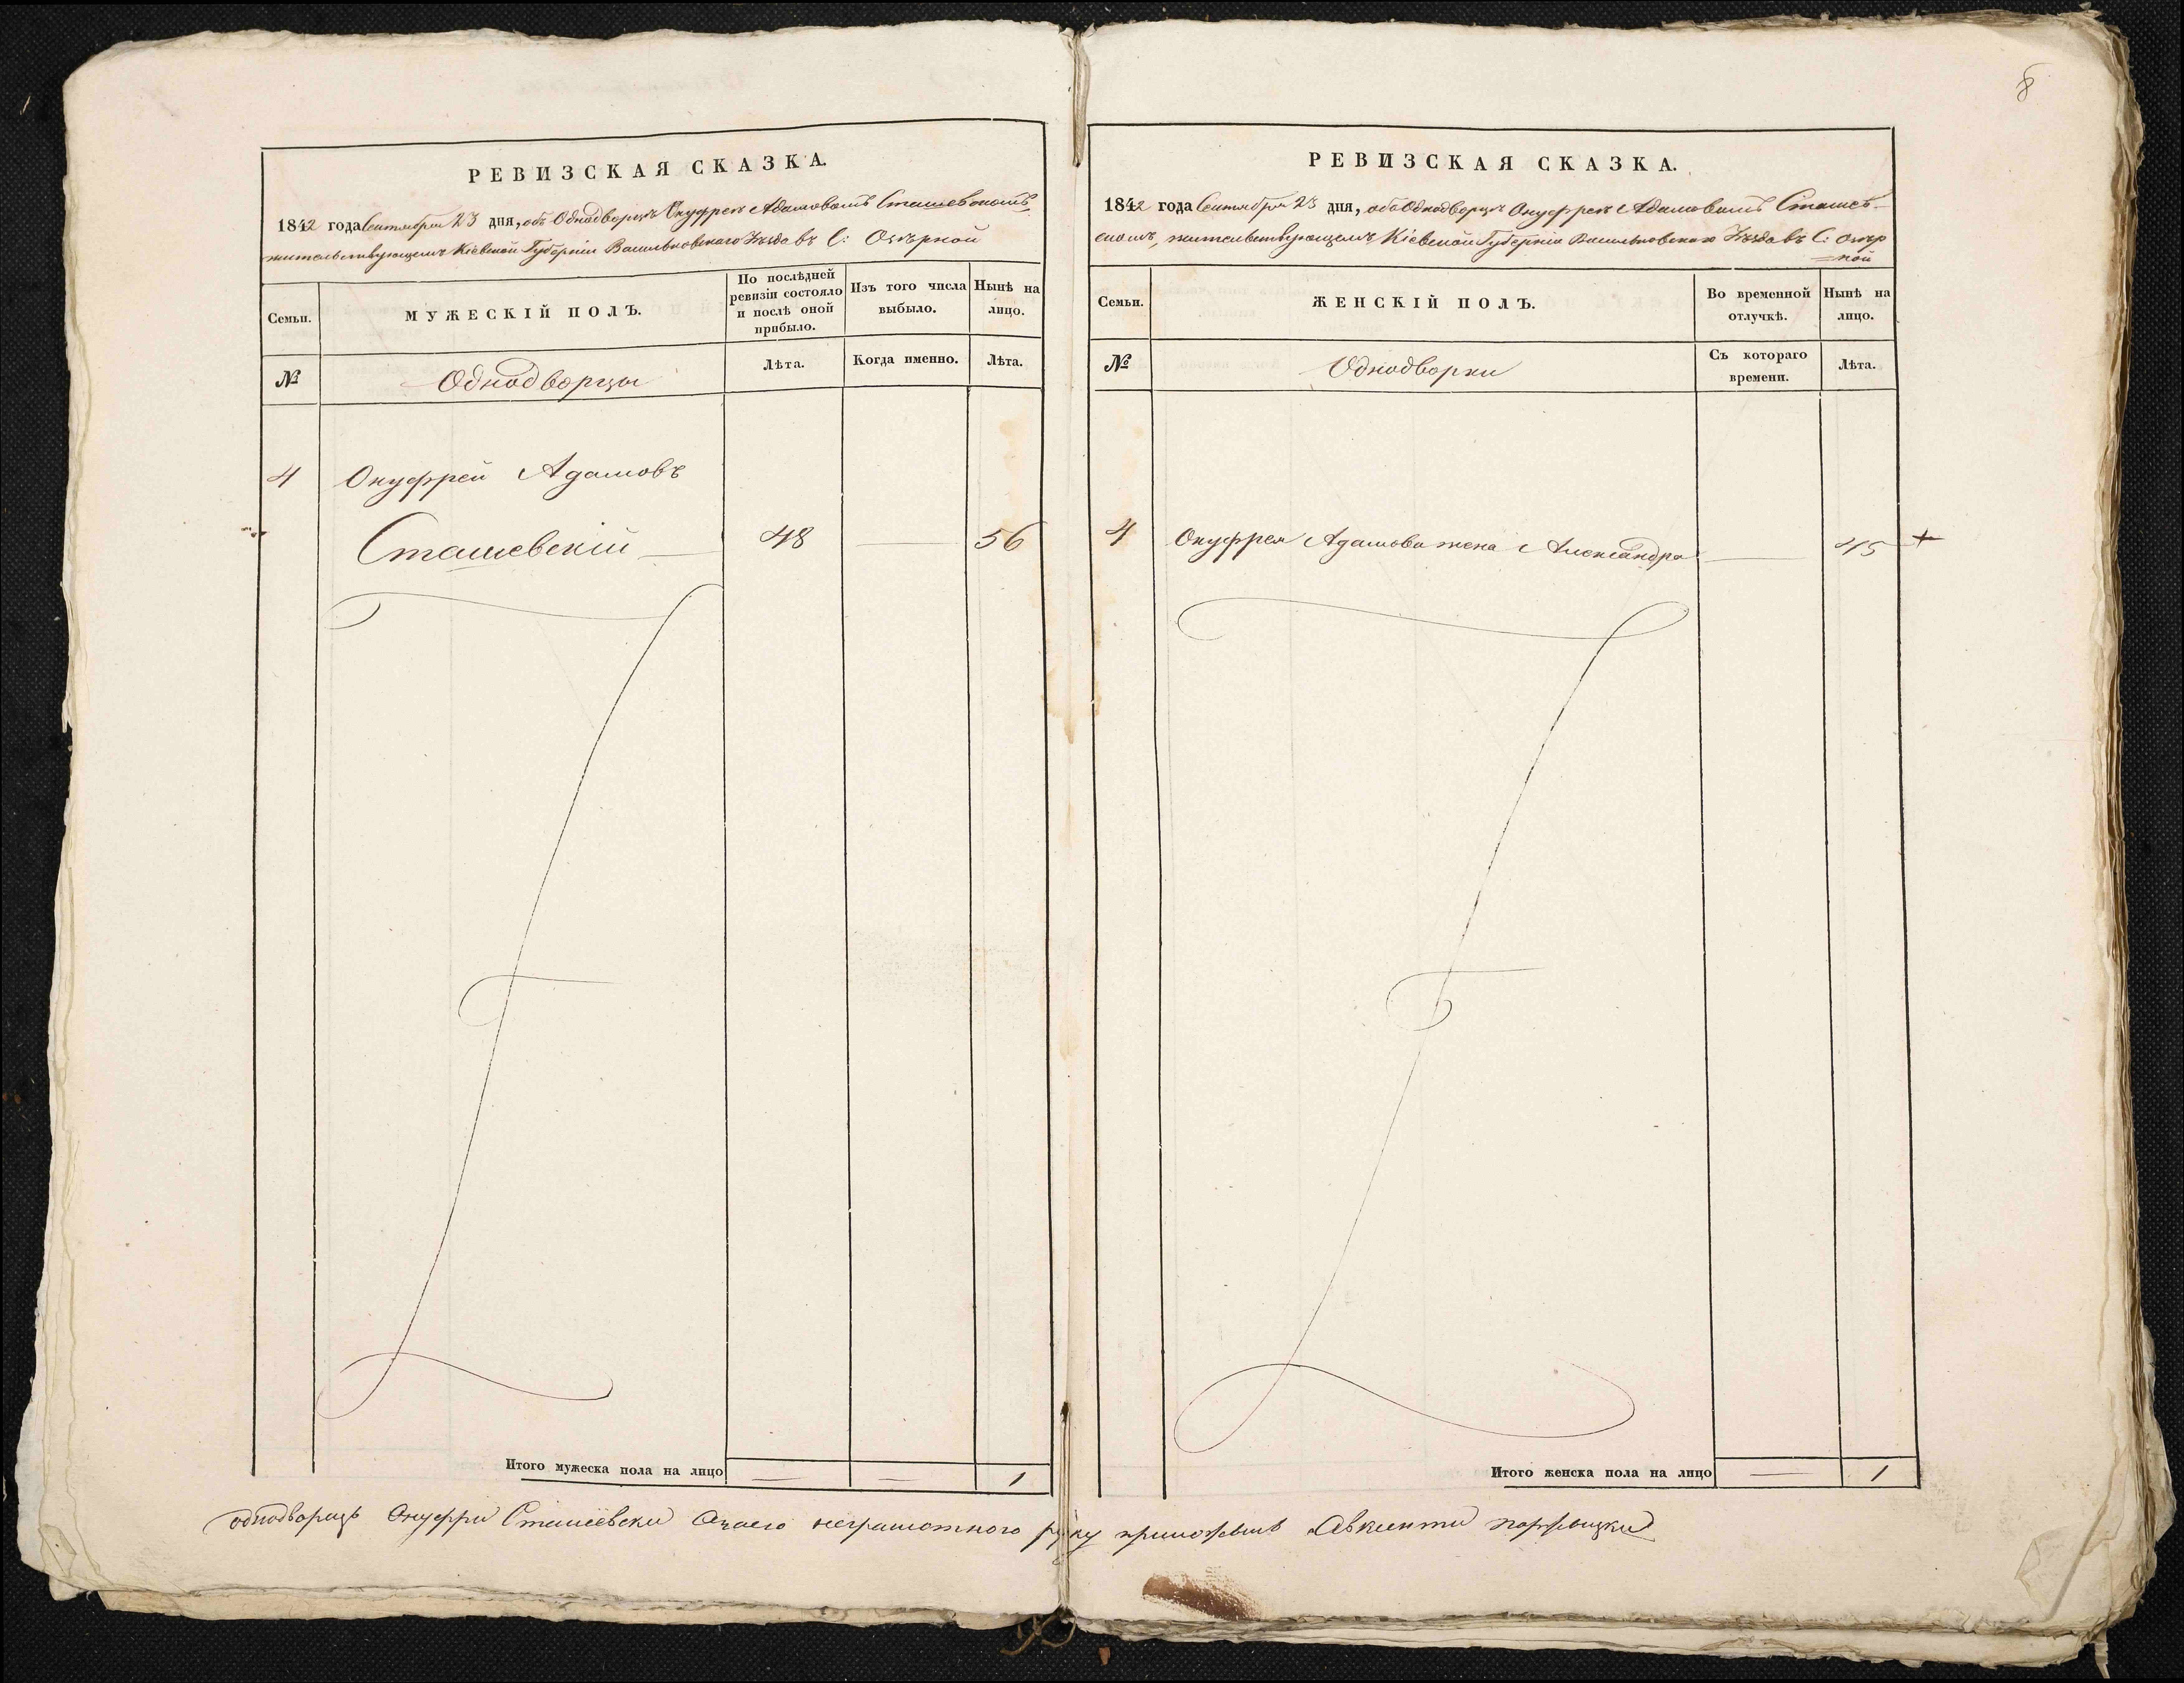 8
РЕВИЗСКАЯ СКАЗКА.
1842 года Сентября 23 дня, объ Однодворцѣ Онуфреѣ Адамовомъ Сташевскомъ,
жительствующемъ Кіевской Губерніи Васильковскаго Уѣзда въ С: Озѣрной
Семьи.
МУЖЕСКІЙ ПОЛЪ.
По послѣдней ревизіи состояло и послѣ оной прибыло.
Изъ того числа выбыло.
Нынѣ на лицо.
№
Однодворцы
Лѣта.
Когда именно.
Лѣта.
4 Онуфрей Адамовъ
Сташевскій 48 — 56
Итого мужеска пола на лицо — — 1
РЕВИЗСКАЯ СКАЗКА.
1842 года Сентября 23 дня, объ Однодворцѣ Онуфреѣ Адамовомъ Сташев-
скомъ, жительствующемъ Кіевской Губерніи Васильковскаго Уѣзда въ С: Озѣр
=ной
Семьи.
ЖЕНСКІЙ ПОЛЪ.
Во временной отлучкѣ.
Нынѣ на лицо.
№
Однодворки
Съ котораго времени.
Лѣта.
4 Онуфрея Адамова жена Александра — 45 +
Итого женска пола на лицо — 1
однодворецъ Онуфри Сташевски неграмотного руку приложилъ